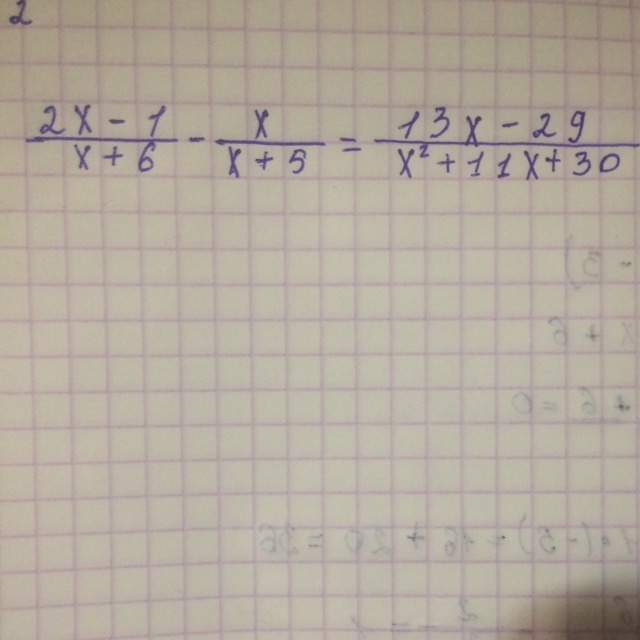 2
(2x - 1)/(x + 6) - x/(x + 5) = (13x - 29)/(x² + 11x + 30)